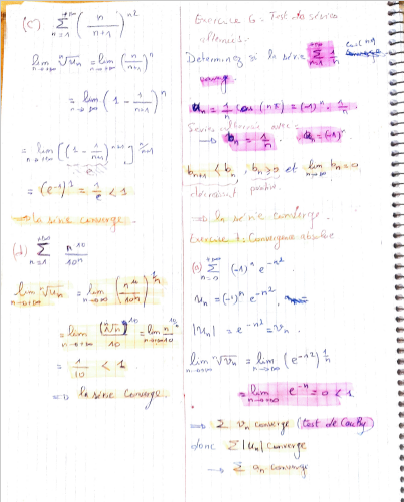 (c) +∞ Σ n=1 (n/(n+1))^n²
lim n→+∞ ⁿ√u_n = lim n→+∞ (n/(n+1))^n
= lim n→+∞ (1 - 1/(n+1))^n
= lim n→+∞ [(1 - 1/(n+1))^(n+1)]^(n/(n+1))
= (e^-1)^1 = 1/e < 1
→ la série converge.
(d) +∞ Σ n=1 n^10/10^n
lim n→+∞ ⁿ√u_n = lim n→+∞ (n^10/10^n)^(1/n)
= lim n→+∞ (ⁿ√n)^10/10 = lim n→+∞
= 1/10 < 1
=> la série converge.
Exercice 6 : Test de séries
alternées.
Déterminez si la série +∞ Σ n=1 1/n cos(nπ)
converge
u_n = 1/n cos(nπ) = (-1)^n · 1/n.
Série alternée avec :
→ b_n = 1/n. a_n = (-1)^n
b_n+1 < b_n, b_n ≥ 0 et lim n→∞ b_n = 0
décroissant positive
=> la série converge.
Exercice 7 : Convergence absolue
(a) +∞ Σ n=0 (-1)^n e^-n²
u_n = (-1)^n e^-n²,
|u_n| = e^-n² = v_n.
lim n→+∞ ⁿ√v_n = lim n→+∞ (e^-n²)^(1/n)
= lim n→+∞ e^-n = 0 < 1
=> Σ v_n converge (test de Cauchy)
donc Σ|u_n| converge
→ Σ a_n converge